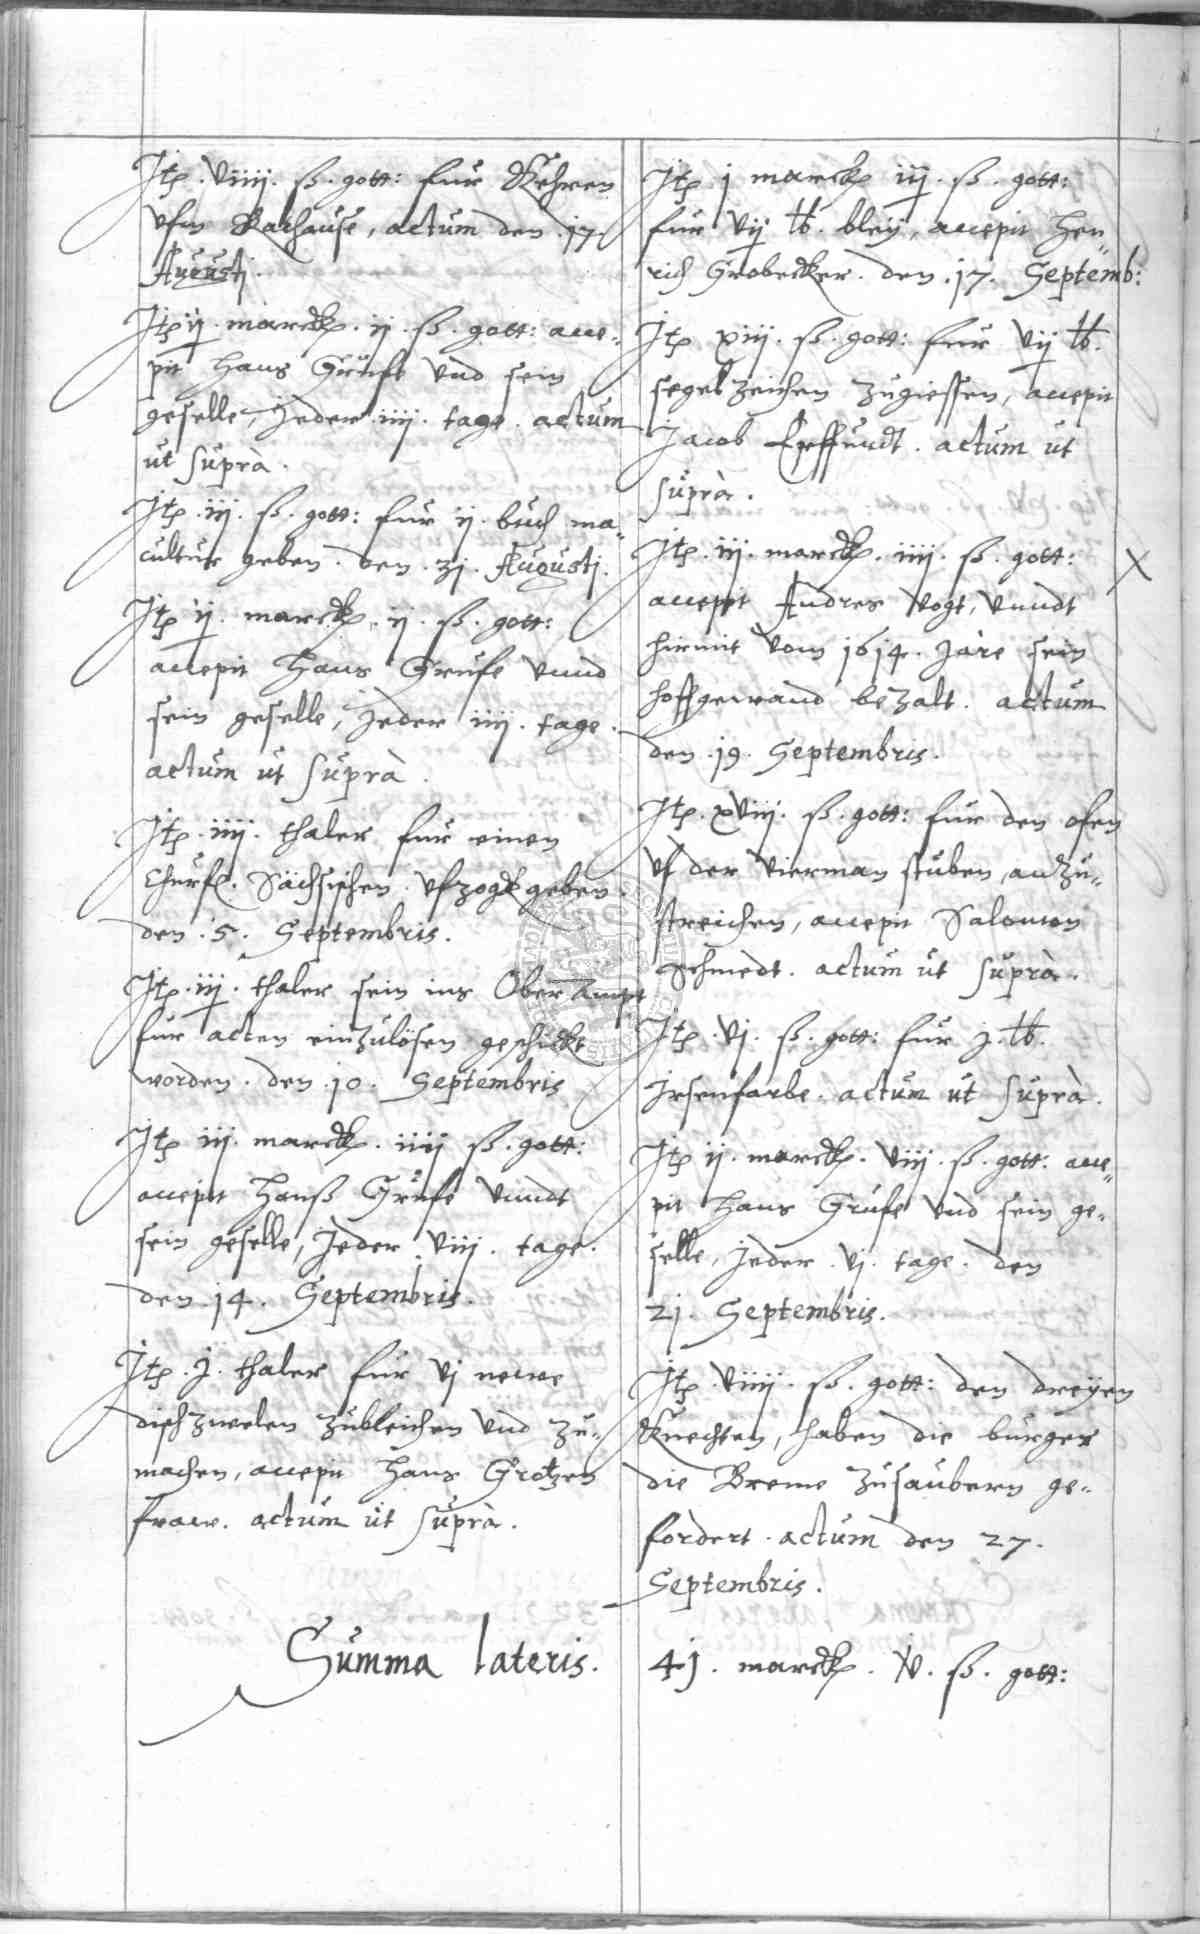 Itp. viiij. ß. gott: fur Kehren
vfm Rathause, actum den .17.
Augustj.
Itp ij. marck. ij. ß. gott: acce-
pit Hans Grufe vnd sein
geselle, Jeder iiij. tage. actum
ut suprà.
Itp. iij. ß. gott: fur ij. buch ma-
cultur geben. den. 21. Augustj.
Itp ij. marck. ij. ß. gott:
accepit Hans Grufe vnnd
sein geselle, Jeder iiij. tage.
actum ut suprà.
Itp. iiij. thaler fur einen
Churf. Sächsischen. vfzogk geben.
den .5. Septembris.
Itp. iij. thaler sein ins Ober Ampt
fur acten einzulösen geschickt
worden. den .10. Septembris
Itp iij. marck. iiij ß. gott:
accepit Hanß Grufe vnndt
sein geselle, Jeder viij. tage.
den .14. Septembris.
Itp. j. thaler fur vj newe
dischzwelen zubleichen vnd zu-
machen, accepit Hans Grotzen
fraw. actum ut suprà.
Itp j marck iij. ß. gott:
fur vij lb. bleij, accepit Hen-
rich Grobecker. den .17. Septemb:
Itp xiij. ß. gott: fur vij lb.
segel zeichen zugiessen, accepit
Jacob actum ut
suprà.
Itp. iij. marck. iiij. ß. gott:
accepit Andres Vogt, vnndt
hirmit vom 1614. Jare sein
hoffgewand bezalt. actum
den .19. Septembris.
Itp. xviij. ß. gott: fur den ofen
vf der vierman stuben, anzu-
streichen, accepit Salomon
Schmedt. actum ut suprà.
Itp. vj. ß. gott: fur j. lb.
Irsenfarbe. actum ut suprà.
Itp ij. marck. viij. ß. gott: acce-
pit Hans Grufe vnd sein ge-
selle, Jeder vj. tage. den
21. Septembris.
Itp. viiij. ß. gott: den dreyen
Knechten, haben die burger
die Breme zusaubern ge-
fordert. actum den 27.
Septembris.
Summa lateris. 41. marck. v. ß. gott: